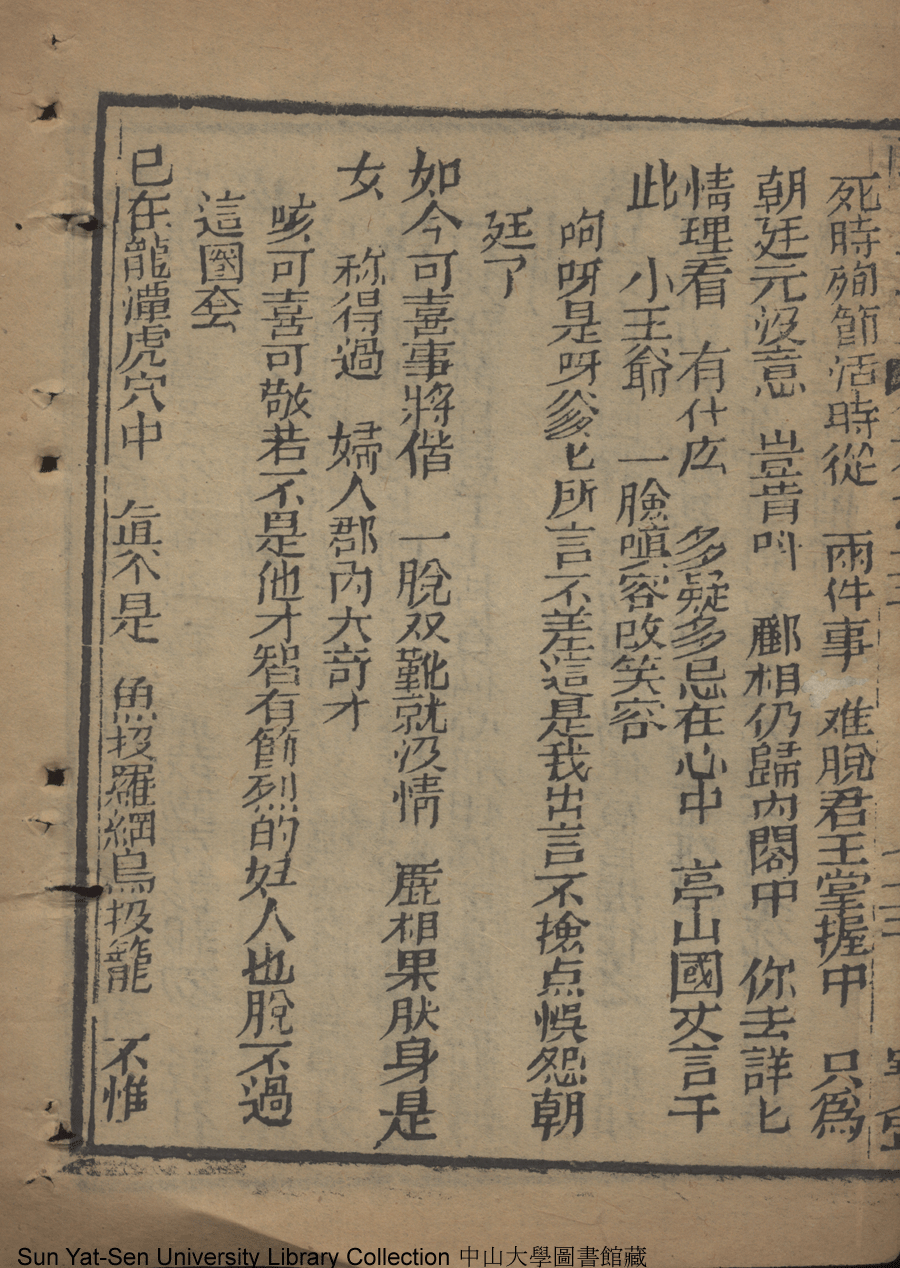 死時殉節活時從　兩件事　难脫君王掌握中　只為
朝廷元没意　豈肯叫　酈相仍歸内閣中　你去詳匕
情理看　有什庅　多疑多忌在心中　亭山國丈言于
此　小王爺　一臉嗔容改笑容
呵呀是呀爹匕所言不差這是我出言不撿点悞怨朝
廷了
如今可喜事將偕　一脫双靴就没情　鹿相果肰身是
女　称得過　婦人郡内大竒才
咳可喜可敬若不是他才智有節烈的妇人也脫不過
這圈套
已在龍潭虎穴中　眞不是　魚投羅網鳥投籠　不惟
Sun Yat-Sen University Library Collection 中山大學圖書館藏